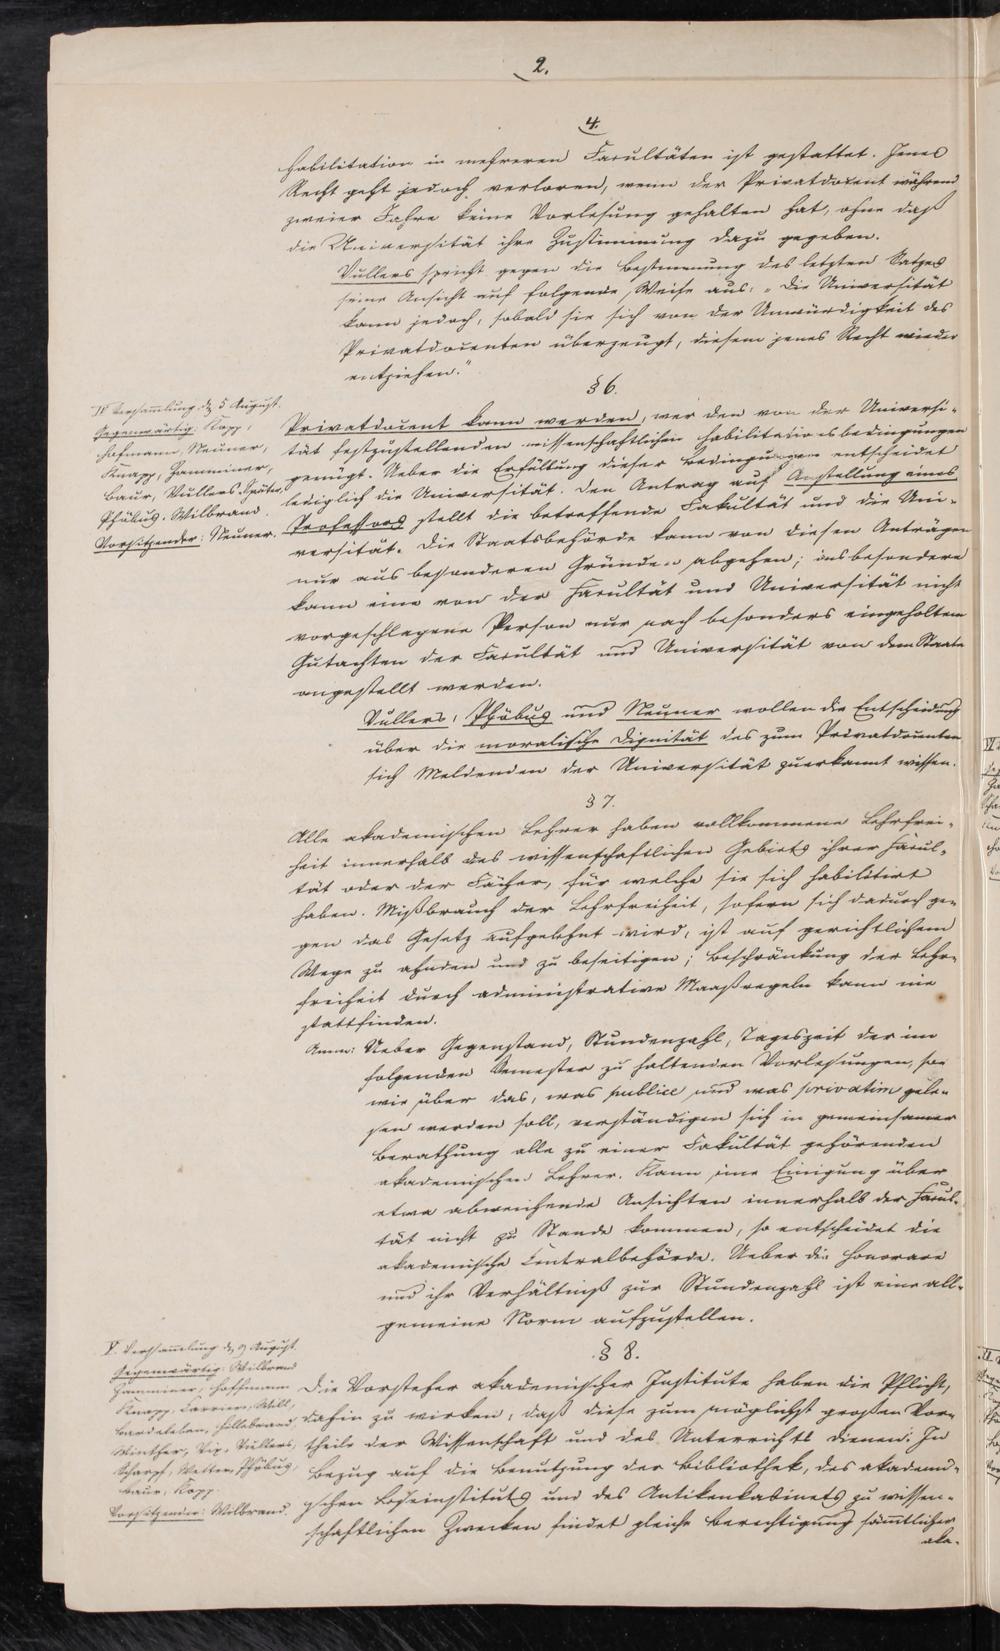 2.
4.
Habilitation in mehreren Facultäten ist gestattet. Jenes
Recht geht jedoch verloren, wenn der Privatdocent während
zweier Jahre keine Vorlesung gehalten hat, ohne daß
die Universität ihre Zustimmung dazu gegeben.
Vullers spricht gegen die Bestimmung des letzten Satzes
seine Ansicht auf folgende Weise aus: „Die Universität
kann jedoch, sobald sie sich von der Unwürdigkeit des
Privatdocenten überzeugt, diesem jenes Recht wieder
entziehen."
IV Versam̄lung d. 5 August.
Gegenwärtig: Kopp,
Hofmann, Neuner,
Knapp, Zamminer,
Baur, Vullers. Später,
Phöbus. Wilbrand.
Vorsitzender: Neuner.
§ 6.
Privatdocent kann werden, wer den von der Universi-
tät festzustellenden wissenschaftlichen Habilitationsbedingungen
genügt. Ueber die Erfüllung dieser Bedingungen entscheidet
lediglich die Universität. Den Antrag auf Anstellung eines
Professors stellt die betreffende Fakultät und die Uni-
versität. Die Staatsbehörde kann von diesen Anträgen
nur aus besonderen Gründen abgehen; insbesondere
kann eine von der Facultät und Universität nicht
vorgeschlagene Person nur nach besonders eingeholtem
Gutachten der Facultät und Universität von dem Staate
angestellt werden.
Vullers, Phöbus und Neuner wollen die Entscheidung
über die moralische Dignität des zum Privatdocenten
sich Meldenden der Universität zuerkannt wissen.
§ 7.
Alle akademischen Lehrer haben vollkommene Lehrfrei-
heit innerhalb des wissenschaftlichen Gebiets ihrer Facul-
tät oder der Fächer, für welche sie sich habilitirt
haben. Mißbrauch der Lehrfreiheit, sofern sich dadurch ge-
gen das Gesetz aufgelehnt wird, ist auf gerichtlichem
Wege zu ahnden und zu beseitigen; Beschränkung der Lehr-
freiheit durch administrative Maaßregeln kann nie
stattfinden.
Anm: Ueber Gegenstand, Stundenzahl, Tageszeit der im
folgenden Semester zu haltenden Vorlesungen, so-
wie über das, was publice und was privatim gele-
sen werden soll, verständigen sich in gemeinsamer
Berathung alle zu einer Fakultät gehörenden
akademischen Lehrer. Kann eine Einigung über
etwa abweichende Ansichten innerhalb der Facul-
tät nicht zu Stande kommen, so entscheidet die
akademische Centralbehörde. Ueber die Honorare
und ihr Verhältniß zur Stundenzahl ist eine all-
gemeine Norm aufzustellen.
V. Versam̄lung d. 9 August.
Gegenwärtig: Wilbrand
Zamminer, Hoffmann
Knapp, Carriere, Will,
Bardeleben, Hillebrand
Winther, Vix, Vullers,
Scharpf, Wetter, Phöbus,
Baur, Kopp.
Vorsitzender: Wilbrand.
§ 8.
Die Vorsteher akademischer Institute haben die Pflicht,
dahin zu wirken, daß diese zum möglichst großen Vor-
theile der Wissenschaft und des Unterrichts dienen. In
Bezug auf die Benutzung der Bibliothek, des akademi-
schen Leseinstituts und des Antikenkabinets zu wissen-
schaftlichen Zwecken findet gleiche Berechtigung säm̄tlicher
aka-